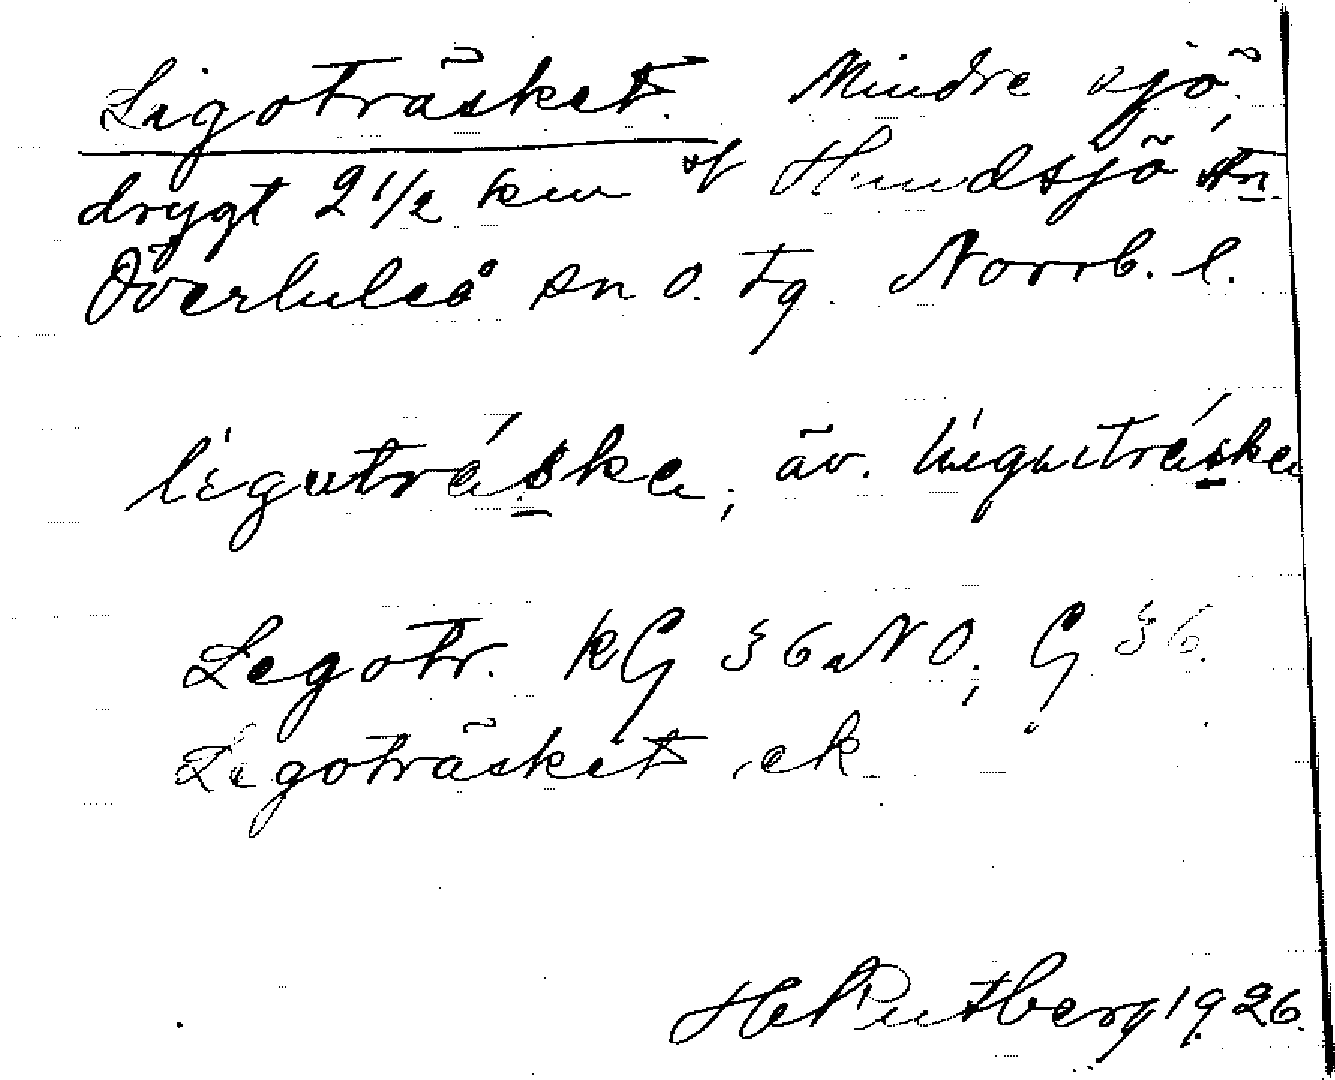 Ligoträsket. Mindre sjö,
drygt 2 1/2 km of Hundsjö stn
Överluleå sn o. tg. Norrb. l.
liguträska, äv. lıguträska
Legotr. KG 36 NO, G 36.
Legoträsket, ek
H Rutberg 1926.